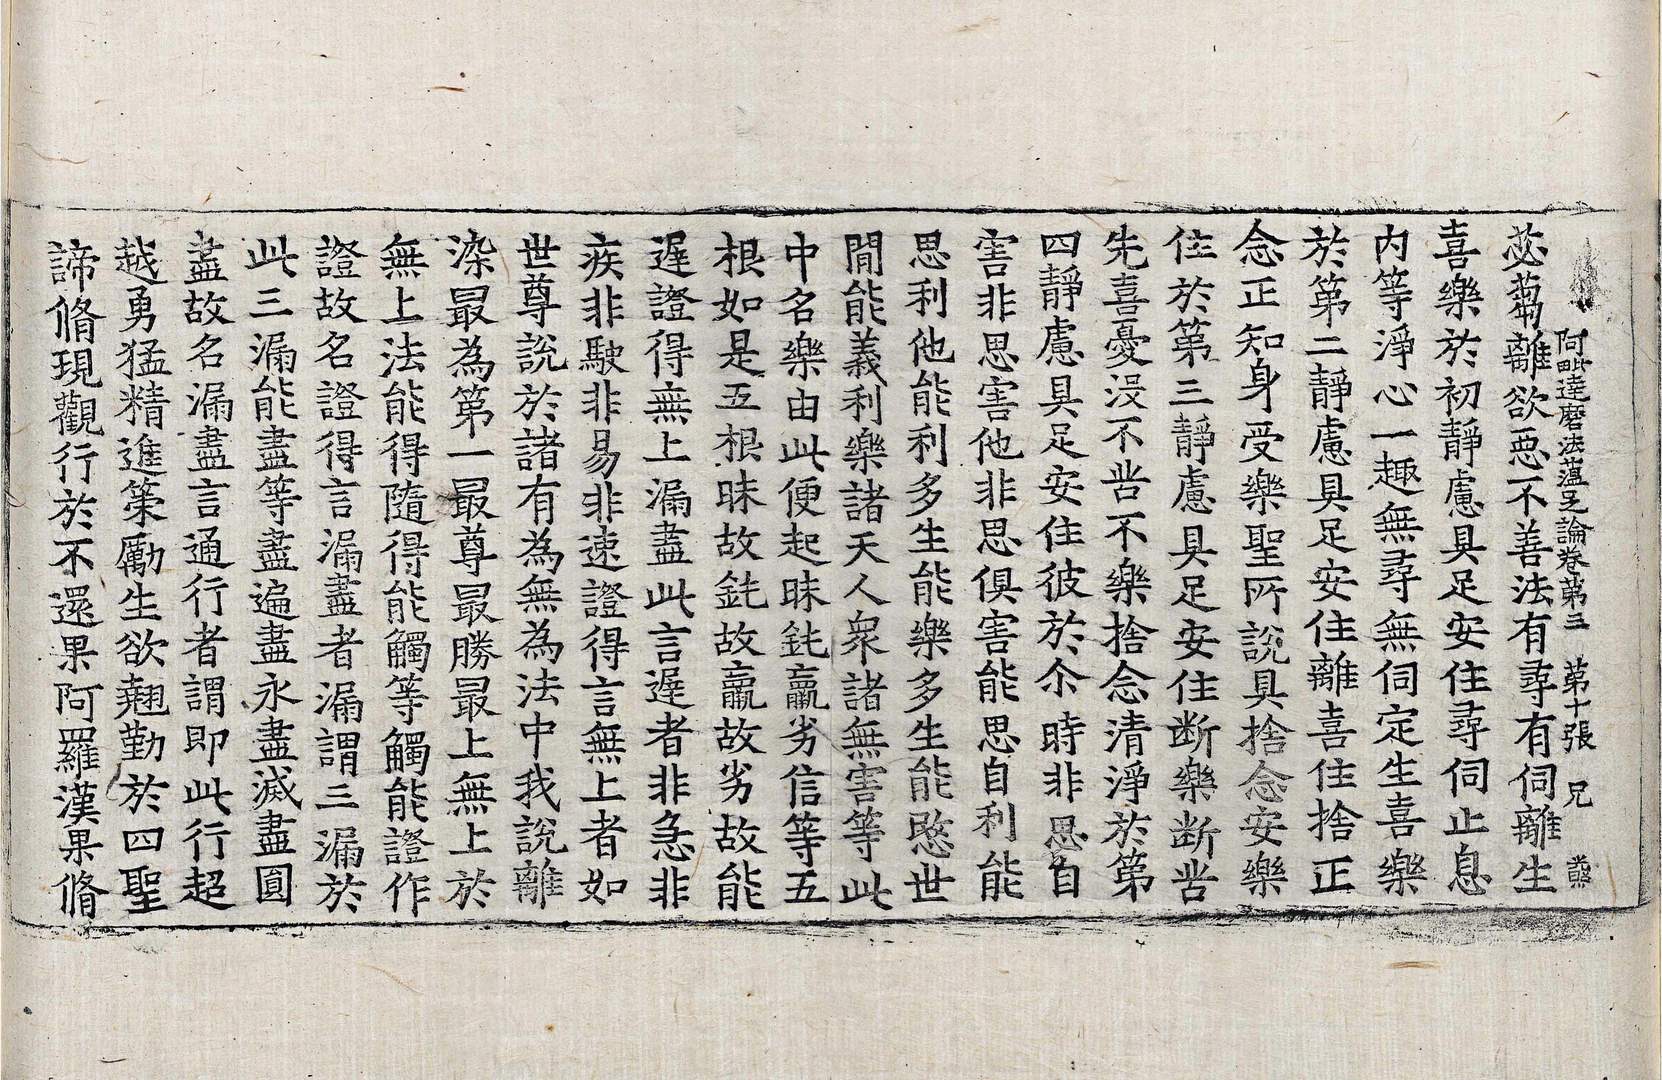 阿毗達磨法蘊足論卷第三　第十張　兄
苾蒭離欲惡不善法有尋有伺離生
喜樂於初靜慮具足安住尋伺止息
內等淨心一趣無尋無伺定生喜樂
於第二靜慮具足安住離喜住捨正
念正知身受樂聖所說具捨念安樂
住於第三靜慮具足安住断樂断苦
先喜憂沒不苦不樂捨念清淨於第
四靜慮具足安住彼於尒時非思自
害非思害他非思俱害能思自利能
思利他能利多生能樂多生能愍世
間能義利樂諸天人衆諸無害等此
中名樂由此便起昧鈍羸劣信等五
根如是五根昧故鈍故羸故劣故能
遲證得無上漏盡此言遲者非急非
疾非駛非易非速證得言無上者如
世尊說於諸有為無為法中我說離
染最為第一最尊最勝最上無上於
無上法能得隨得能觸等觸能證作
證故名證得言漏盡者漏謂三漏於
此三漏能盡等盡遍盡永盡滅盡圓
盡故名漏盡言通行者謂即此行超
越勇猛精進策勵生欲翹勤於四聖
諦脩現觀行於不還果阿羅漢果脩